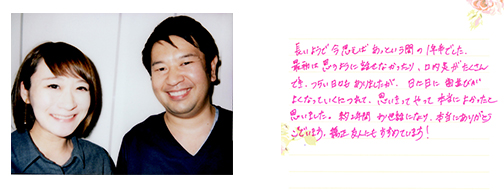 長いようで今思えばあっという間の1年半でした。
最初は思のように話せなかったり、口内炎がたくさん
でき、つらい日もありましたが、日に日に歯並びが
よくなっていくにつれて、思いきってやって本当によかったと
思いました。約2年間お世話になり、本当にありがとう
ございます。矯正友人にもすすめています！